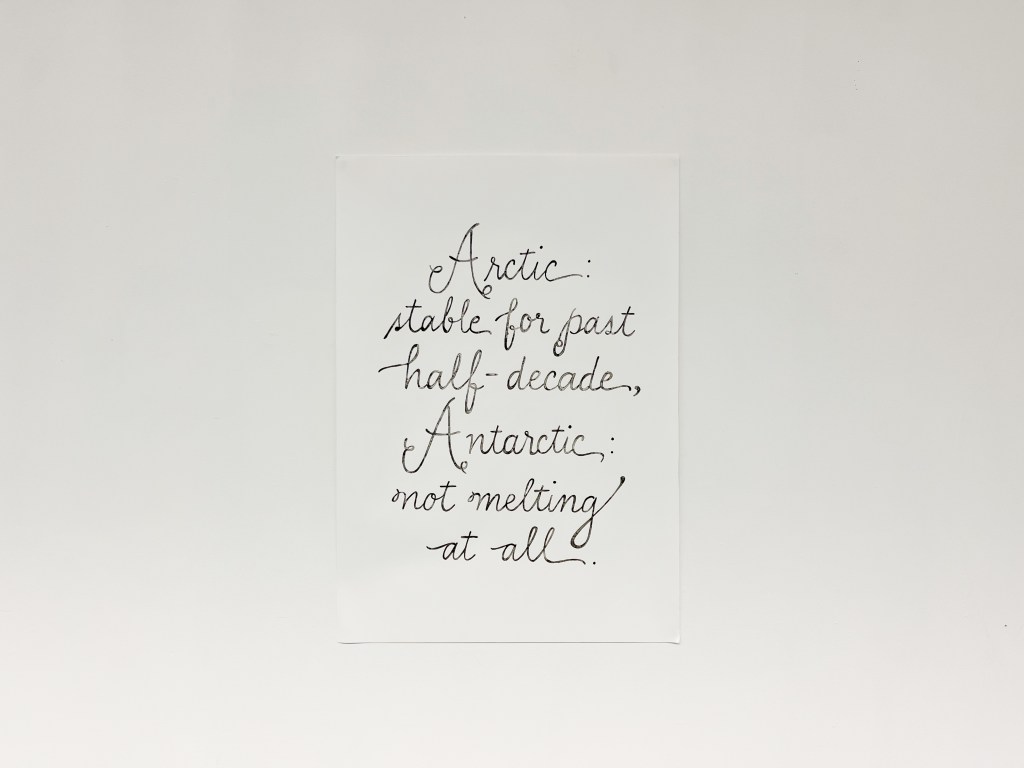 Arctic:
stable for past
half-decade,
Antarctic:
not melting
at all.